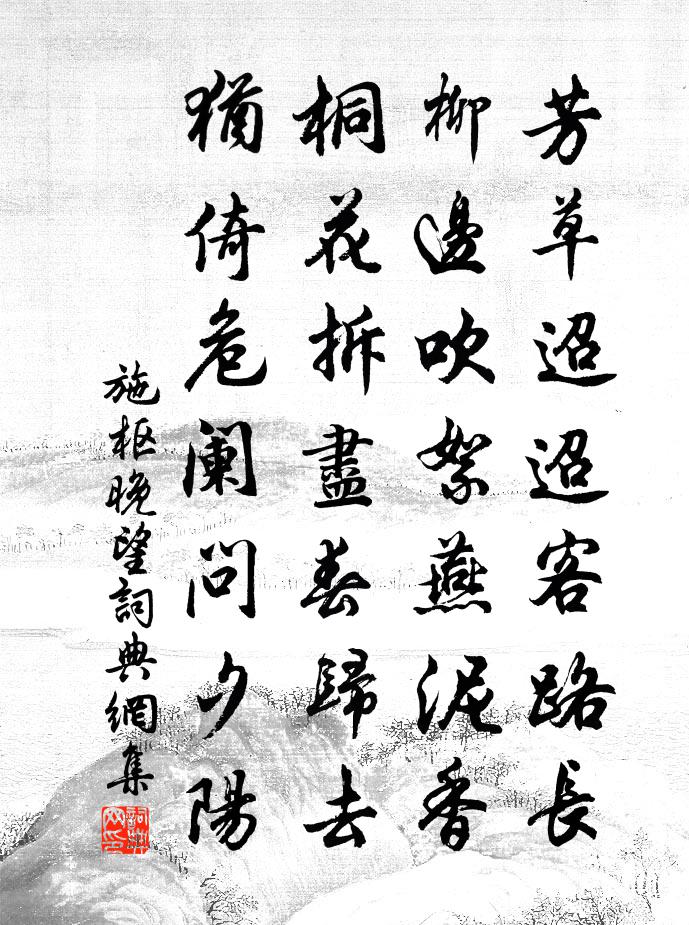 芳草迢迢客路長
柳邊吹絮燕泥香
桐花拆盡春歸去
猶倚危阑問夕陽
施枢晚望詞典網集
詞典网